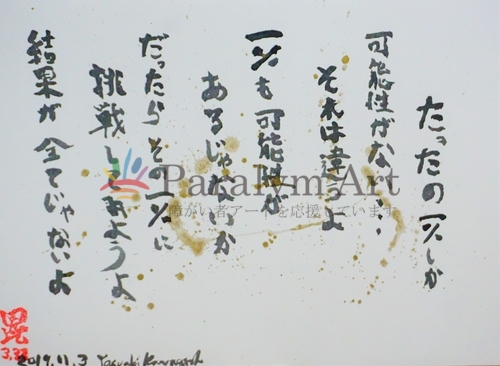 たったの一%しか
可能性がない…
それは違うよ
一%も可能性が
あるじゃないか
だったらその一%に
挑戦してみようよ
結果が全てじゃないよ
Paralym Art
障がい者アートを応援しています
3.33
2019.11.3